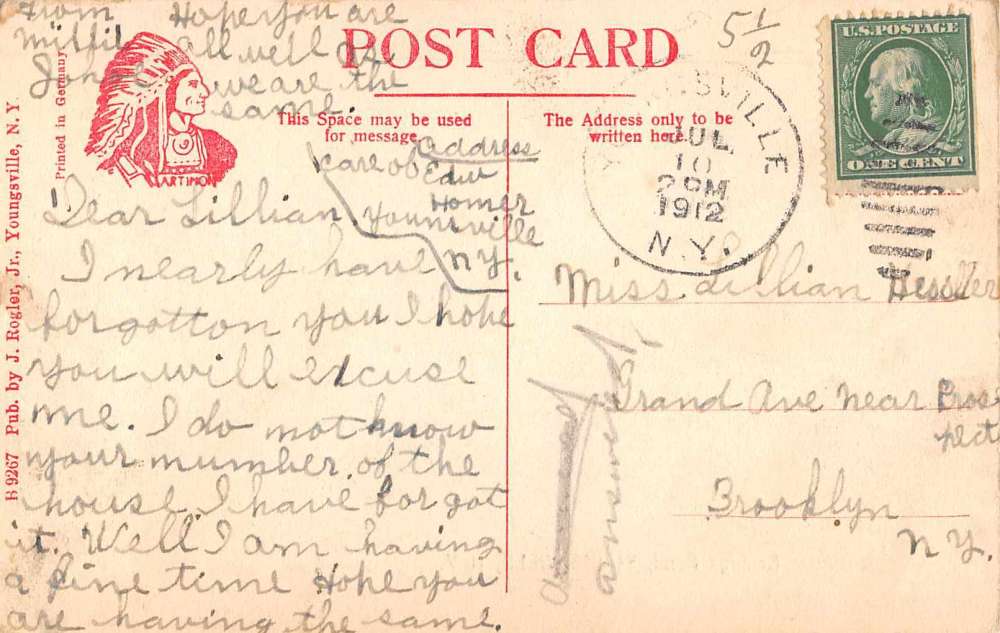 From Hope you are
all well as
we are the
same.
Printed in Germany
ARTINO
B 9267 Pub. by J. Rogler, Jr., Youngsville, N. Y
POST CARD
This Space may be used
for message
The Address only to be
written here.
5 1/2
U.S. POSTAGE
ONE CENT
SVILLE
JUL
10
2 PM
1912
N.Y.
address
care of Edw
Homer
Younsville
N.Y.
Dear Lillian
I nearly have
forgotton you I hope
you will excuse
me. I do not know
your number of the
house I have forgot
it. Well I am having
a fine time Hope you
are having the same.
Miss Lillian
Grand Ave near Pros-
pect
Brooklyn
N Y.
answered